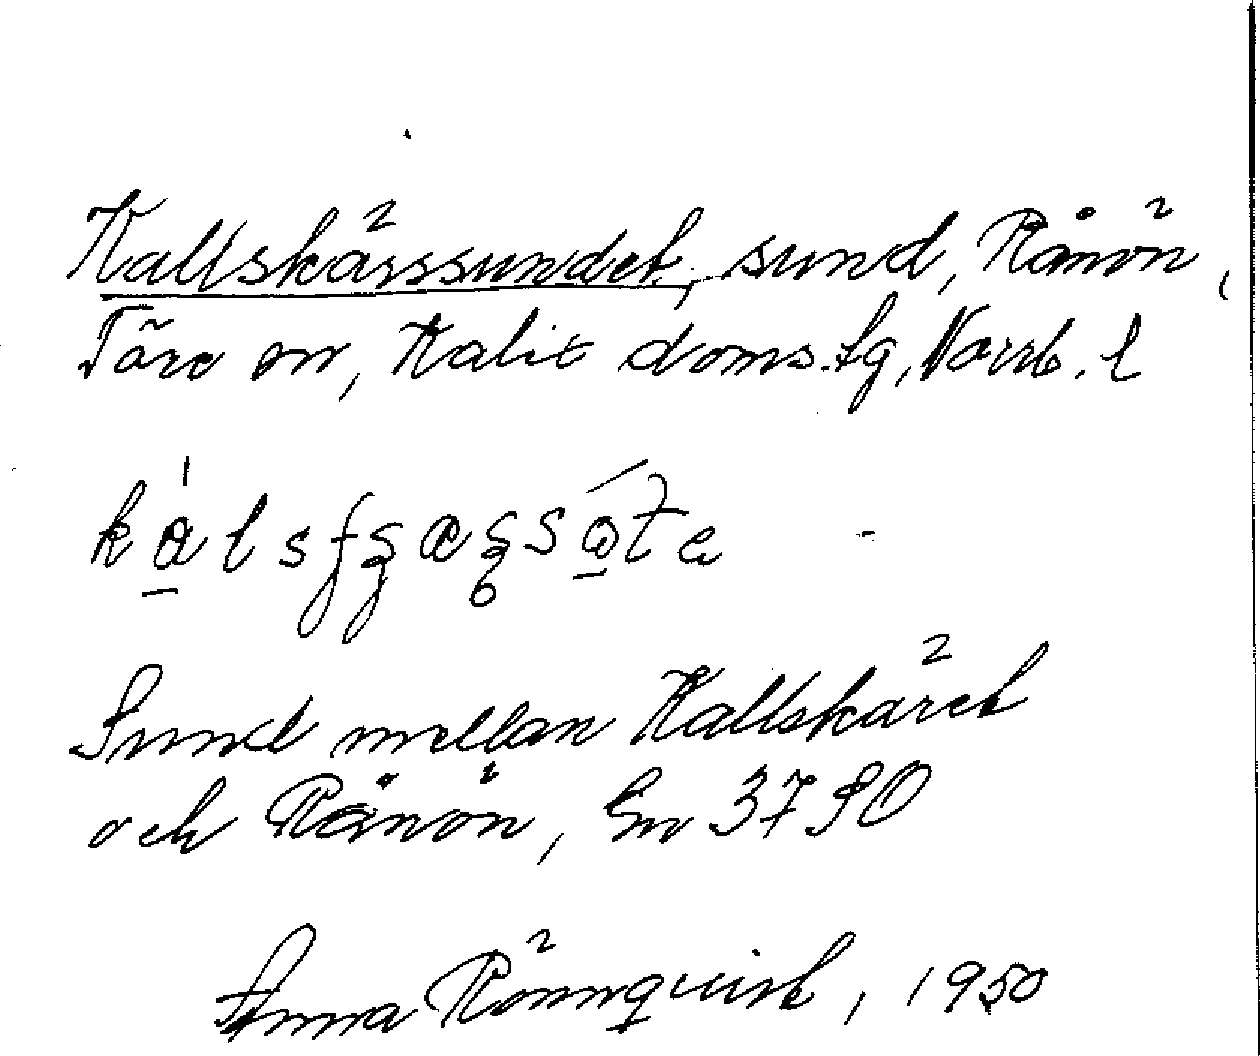 Kallskärssundet, sund, Rånön,
Töre sn, Kalix doms.lg, Norrb. l
Sund mellan Kallskäret
och Rånön, Gm 3790
Anna Rönnquist, 1950